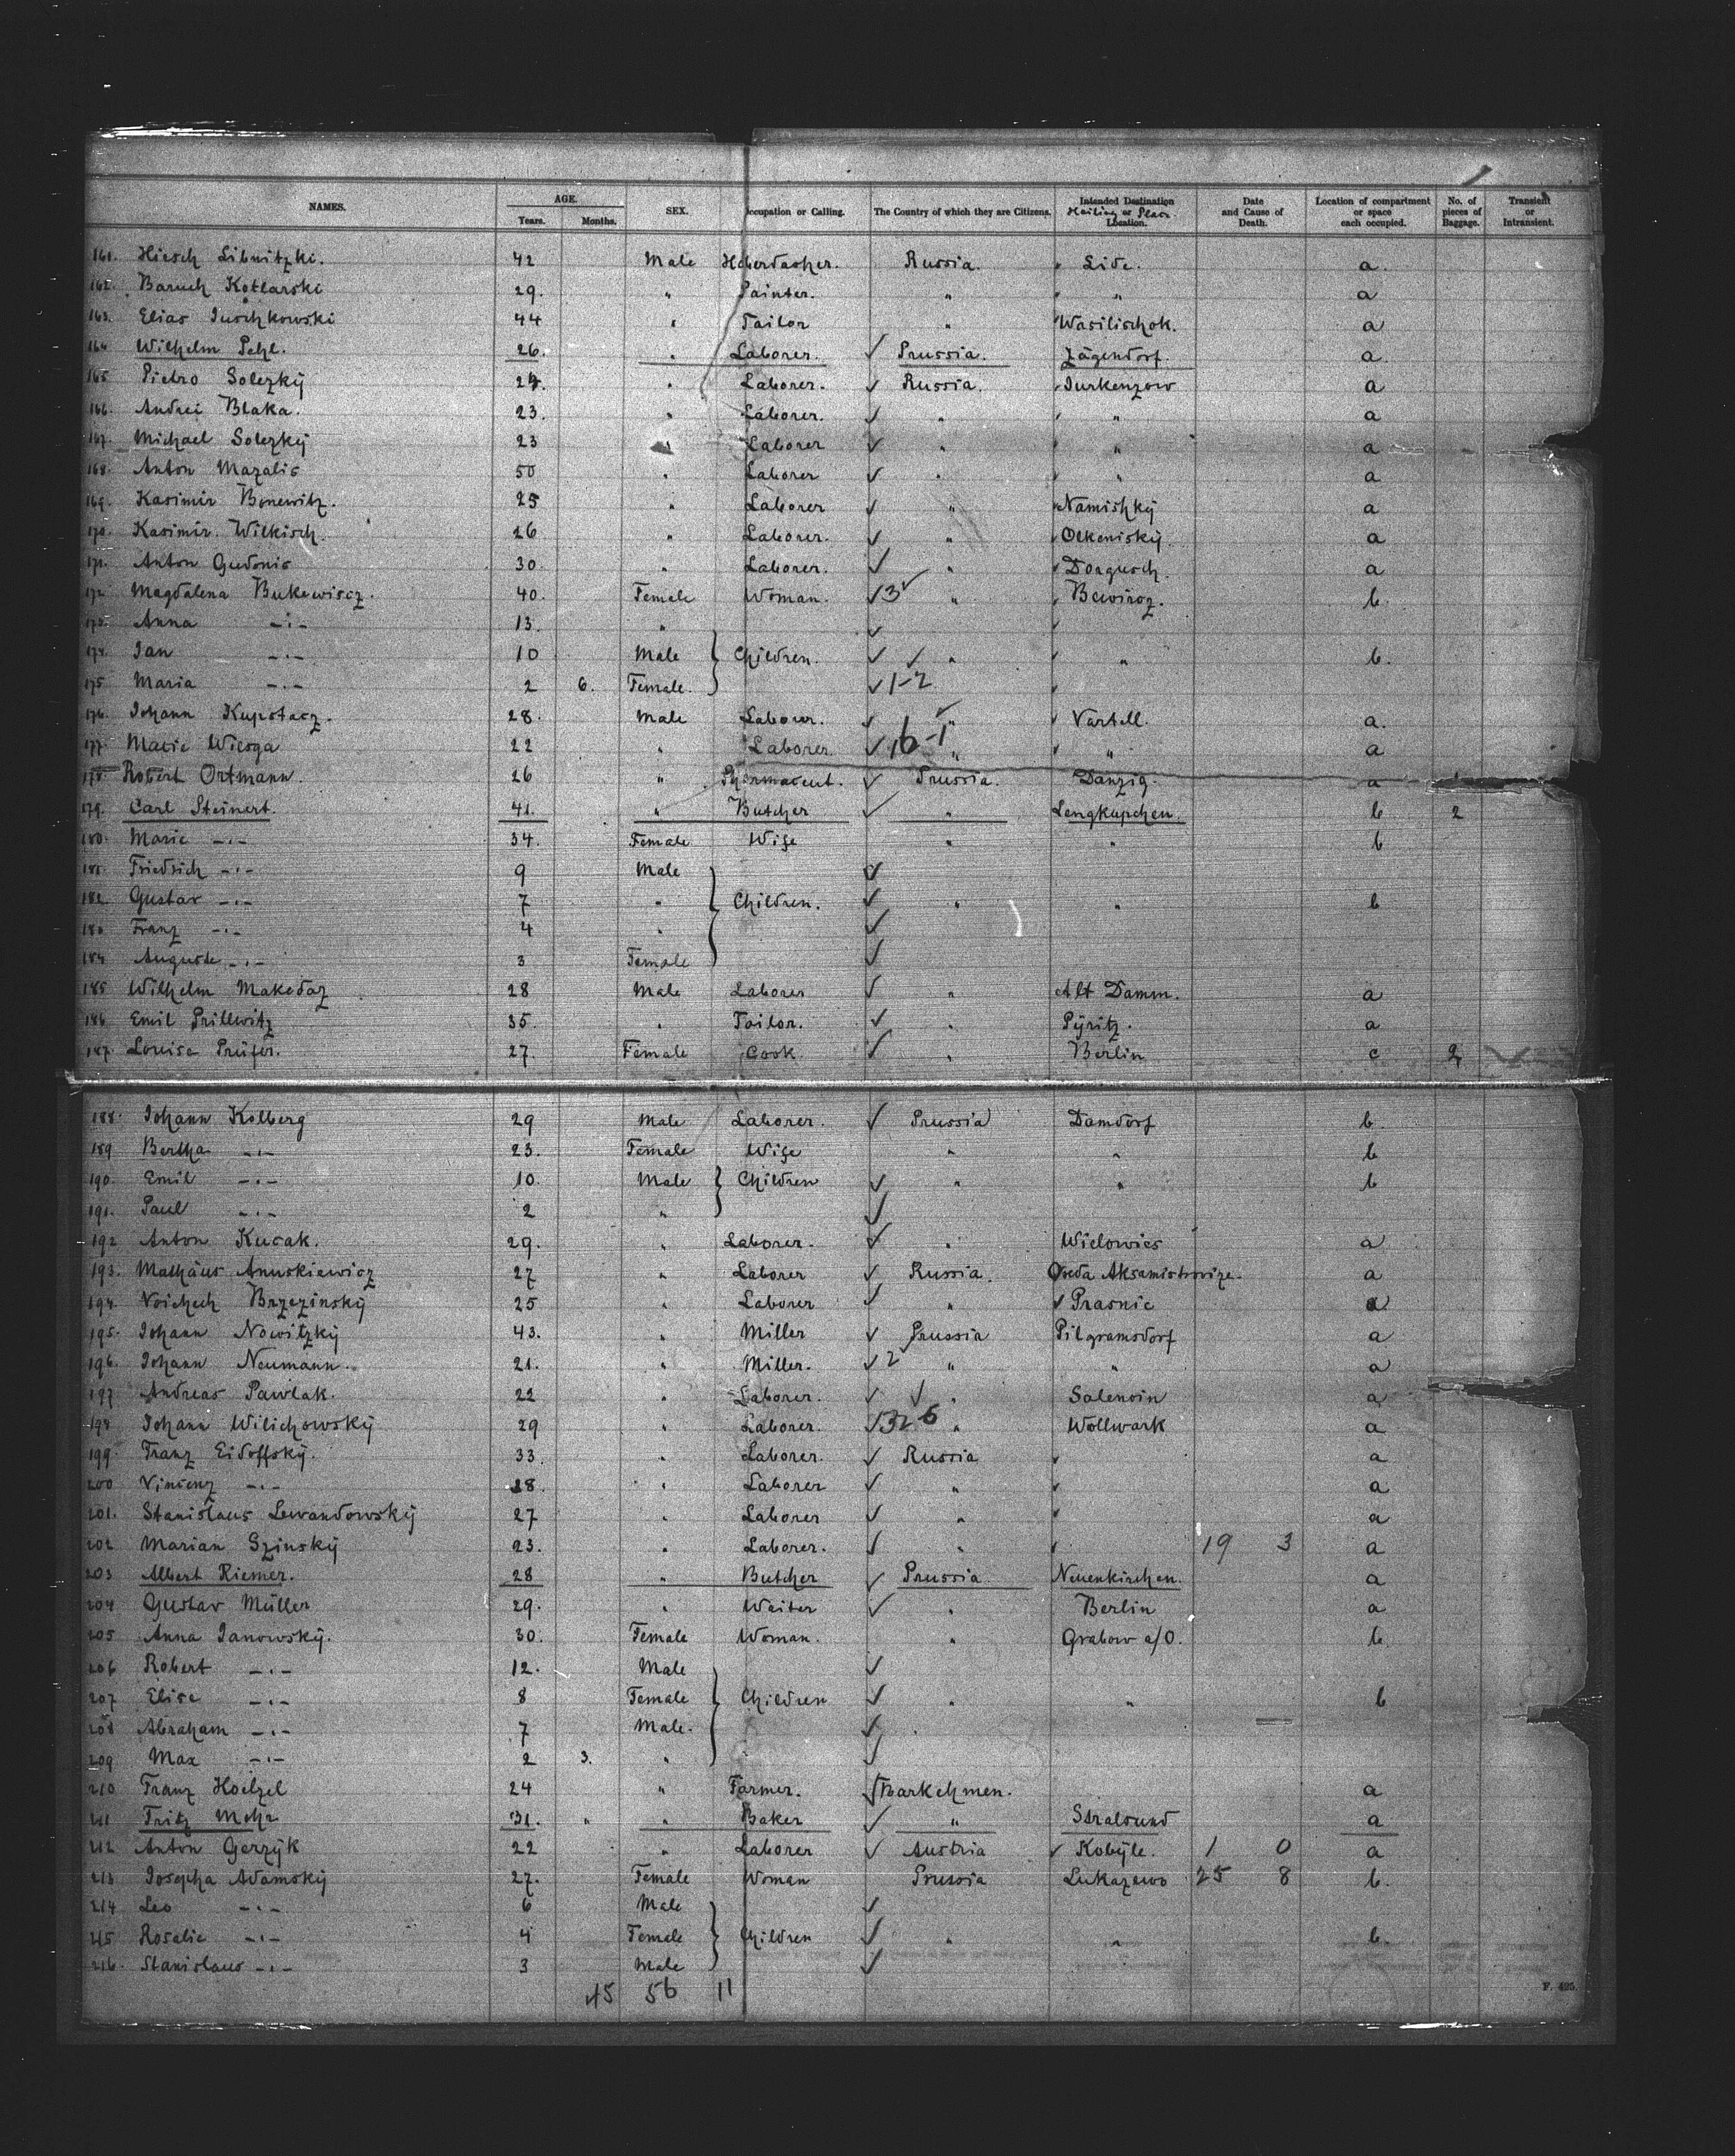 NAMES. AGE. Years. Months. SEX. Occupation or Calling. The Country of which they are Citizens. Intended Destination Hailing or Place Location. Date and Cause of Death. Location of compartment or space each occupied. No. of pieces of Baggage. Transient or Intransient.
161. Hirsch Libnitzki. 42 Male Haberdasher. Russia. Lide. a.
162. Baruch Kotlarski 29. " Painter. " " a
163. Elias Juschkowski 44 " Tailor " Wasilischok. a
164 Wilhelm Pehl. 26. " Laborer. ✓ Prussia. Zägendorf. a
165 Pietro Solezký 24. " Laborer. ✓ Russia. Turkenzow a
166. Andrei Blaka. 23. " Laborer. ✓ " " a
167. Michael Solezký 23 " Laborer ✓ " " a
168. Anton Mazalis 50 " Laborer ✓ " " a
169. Kasimir Bonewitz. 25 " Laborer ✓ " Namishký a
170. Kasimir Wilkisch. 26 " Laborer. ✓ " Olkeniský a
171. Anton Gudonis 30 " Laborer. ✓ " Dorgusch. a
172 Magdalena Bukewiscz. 40. Female Woman. ✓ 3 ✓ " Bewirsz. b.
173. Anna -"- 13. " ✓
174. Jan -"- 10 Male Children. ✓ ✓ " " b.
175 Maria -"- 2 6. Female. ✓ 1-2
176. Johann Kupstacz. 28. Male Laborer. ✓ " Vartell. a.
177. Macie Wiesga 22 " Laborer. ✓ 16-1 " " a
178. Robert Ortmann. 26 " Pharmaceut. ✓ Prussia. Danzig. a
179. Carl Steinert. 41. " Butcher ✓ " Lengkupchen. b 2
180. Marie -"- 34. Female Wife " " b
181. Friedrich -"- 9 Male ✓
182. Gustav -"- 7 " Children. ✓ " " b
183 Franz -"- 4 " ✓
184 Auguste -"- 3 Female ✓
185 Wilhelm Makedaz 28 Male Laborer ✓ " Alt Damm. a
186 Emil Prillwitz 35. " Tailor. ✓ " Pyritz. a
187. Louise Prüfer. 27. Female Cook ✓ " Berlin c 2
188. Johann Kolberg 29 Male Laborer. ✓ Prussia Damdorf b.
189 Bertha -"- 23. Female Wife " " b
190. Emil -"- 10. Male Children ✓ " " b
191. Paul -"- 2 " ✓
192 Anton Kucak. 29. " Laborer. ✓ " Wielowies a
193. Mathäus Anuskiewicz 27 " Laborer ✓ Russia. a
194. Voichech Brzezinský 25 " Laborer ✓ " ✓ Prasnic a
195. Johann Nowitzký 43. " Miller ✓ Prussia Pilgramsdorf a
196. Johann Neumann. 21. " Miller. ✓ 2 ✓ " " a
197 Andreas Pawlak. 22 " Laborer. ✓ ✓ " Salensin a
198. Johann Wilichowský 29 " Laborer. ✓ 32 6 " Wollwark a
199. Franz Eidoffský. 33. " Laborer. ✓ Russia a
200 Vincenz -"- 28. " Laborer ✓ " a
201. Stanislaus Lewandowský 27 " Laborer ✓ " a
202 Marian Szinský 23. " Laborer. ✓ " 19 3 a
203 Albert Riemer. 28 " Butcher ✓ Prussia Neuenkirchen. a
204 Gustav Müller 29. " Waiter ✓ " Berlin a
205 Anna Janowský. 30. Female Woman. " Grabow a/O. b.
206 Robert -"- 12. Male ✓
207 Elise -"- 8 Female Children ✓ " " b
208 Abraham -"- 7 Male. ✓
209 Max -"- 2 3. " ✓
210 Franz Hoelzel 24 " Farmer. ✓ Darkehmen. a
211 Fritz Mehr 31. " " Baker ✓ " Stralsund a
212 Anton Gerzýk 22 " Laborer ✓ Austria ✓ Kobýle. 1 0 a
213 Josepha Adamský 27. Female Woman Prussia Lukazewo 25 8 b.
214 Leo -"- 6 Male ✓
215 Rosalie -"- 4 Female Children ✓ " " b.
216. Stanislaus -"- 3 Male ✓
45 56 11
F. 425.